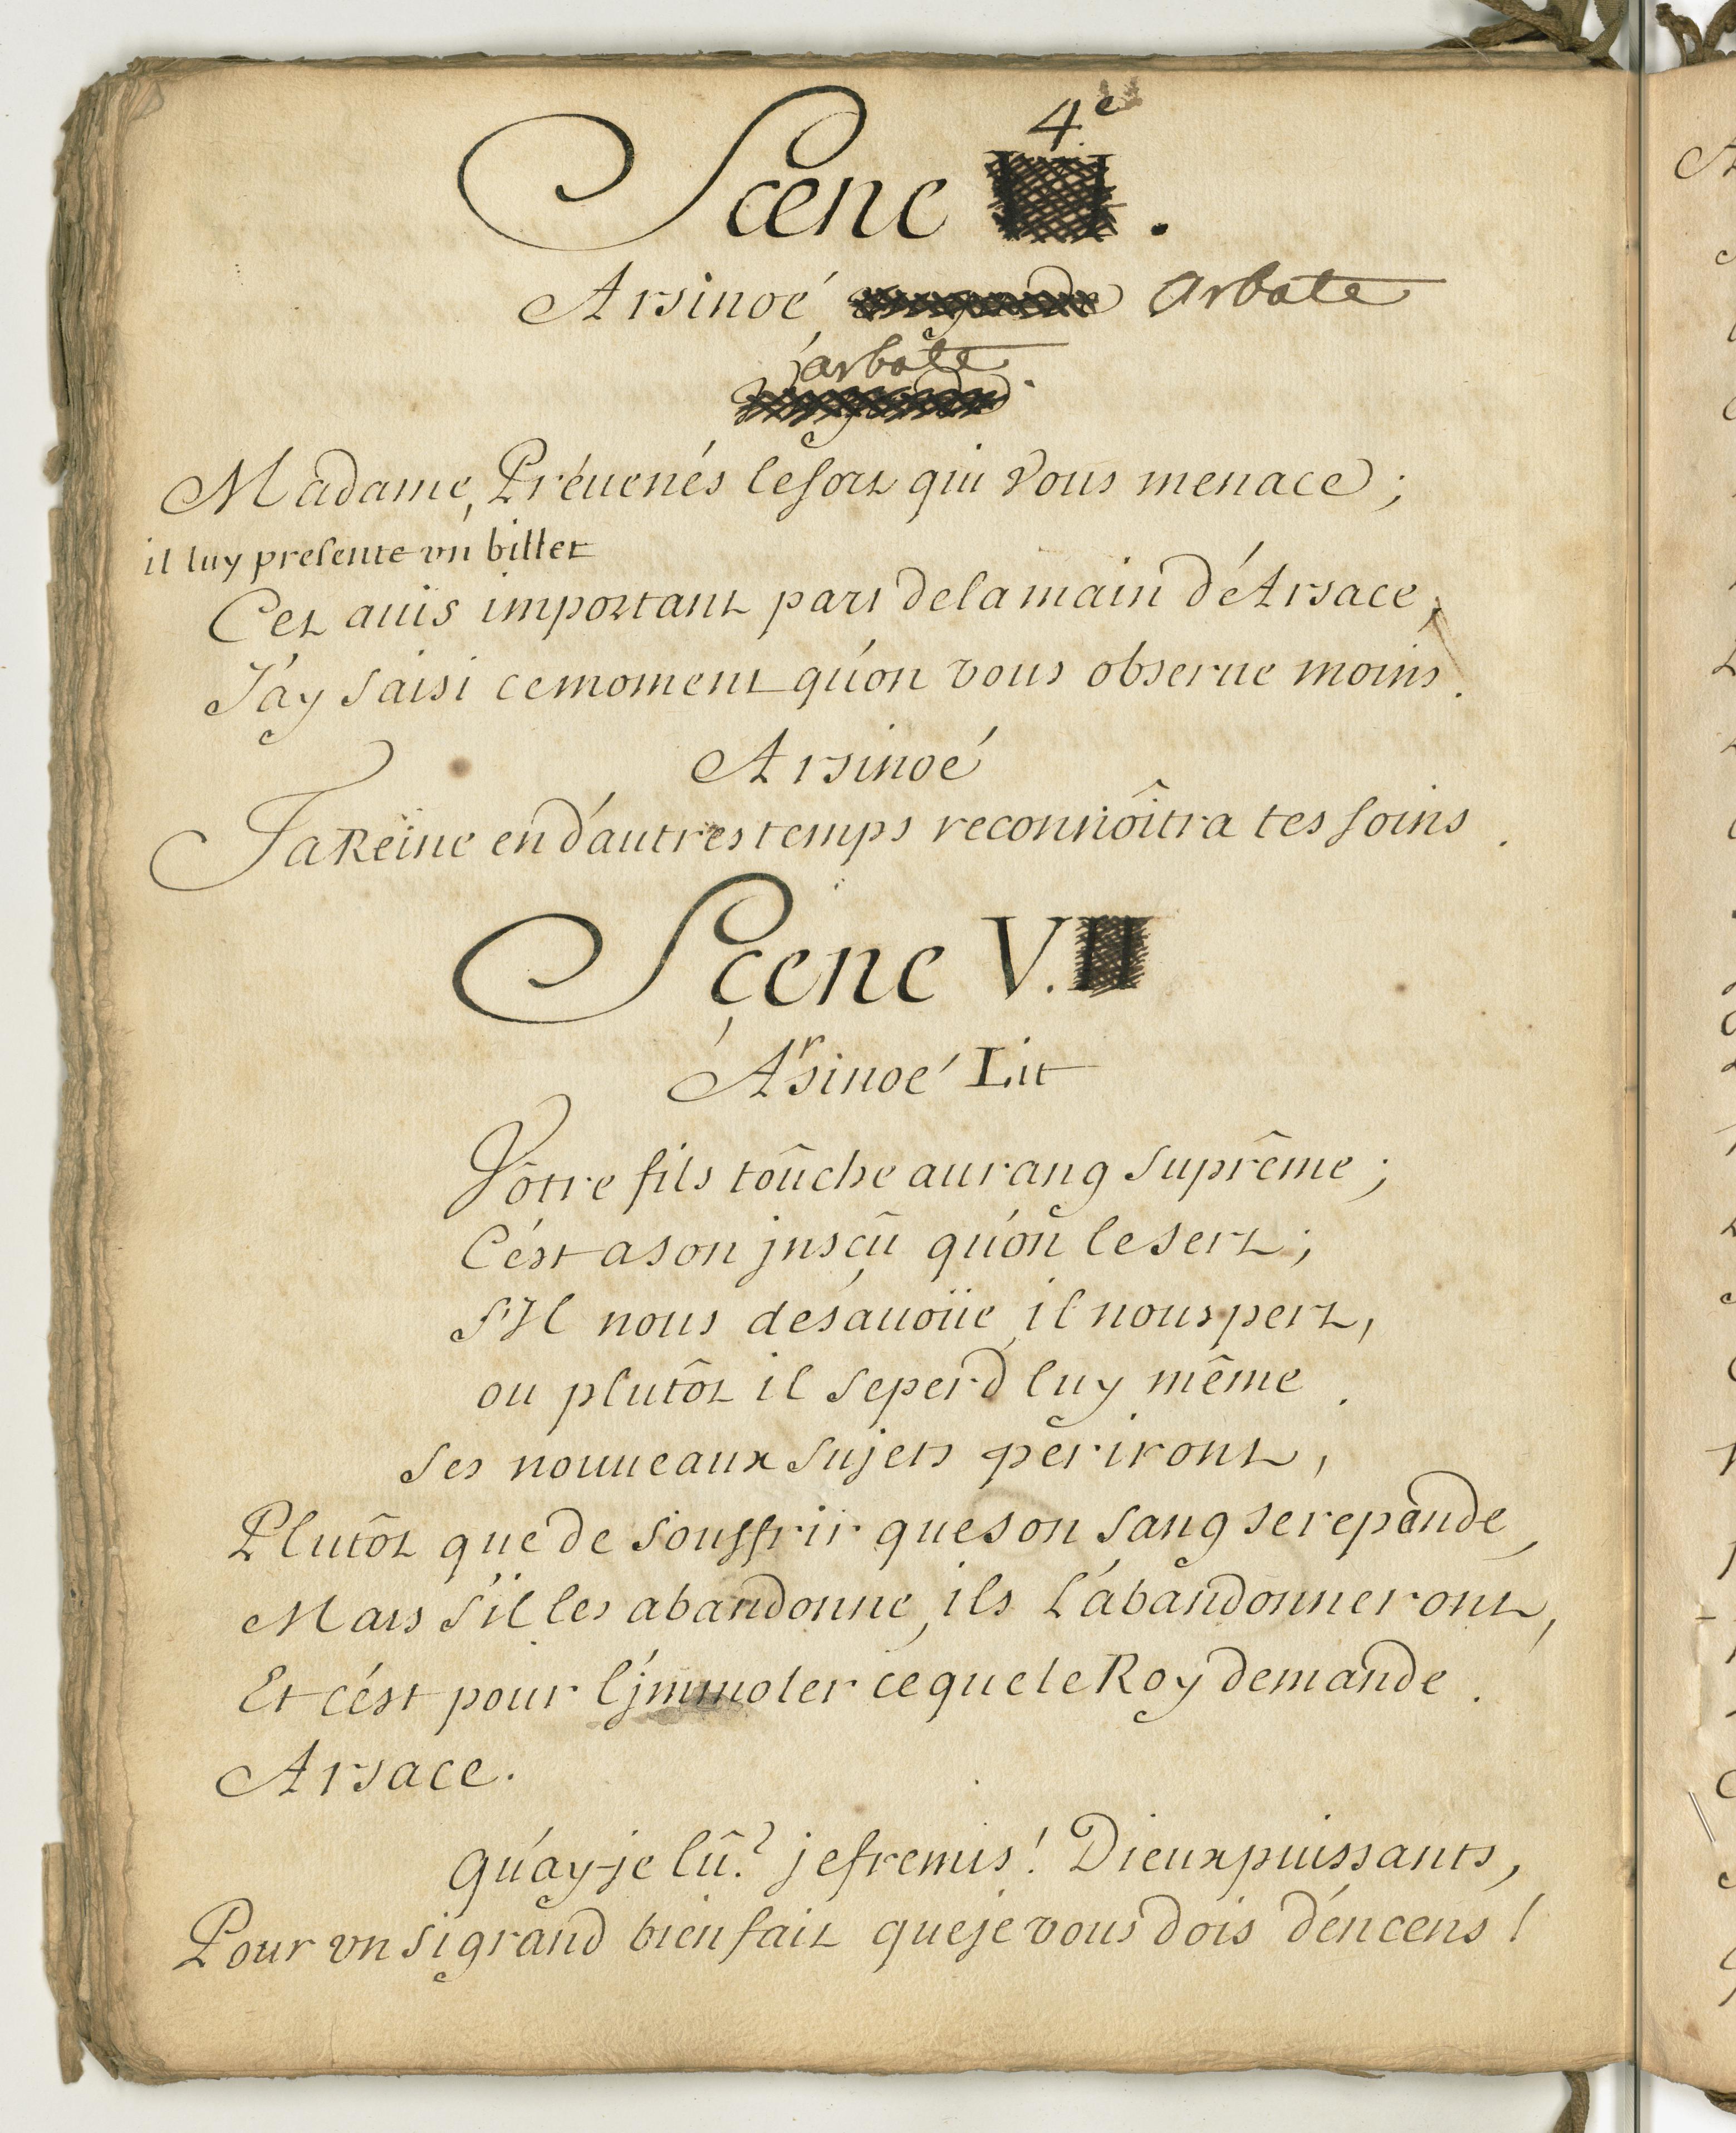 4e
Scene .
Arsinoé arbate
arbate.
Madame, Préuenés le sort qui Vous menace;
il luy presente vn billet
Cet auis important part de la main d'Arsace,
J'ay saisi ce moment qu'on vous obserue moins.
Arsinoé
Ta Reine en d'autres temps reconnoîtra tes soins.
Scene V.
Arsinoé Lit
Vôtre fils toûche au rang suprême;
C'est a son jnsçû qu'on le sert;
S'Il nous desauoüe, il nous pert,
ou plutôt il se perd luy même.
Ses nouueaux sujets périront,
Plutôt que de souffrir que son sang se repande,
Mais s'il les abandonne, ils l'abandonneront,
Et c'est pour l'jmmoler ce que le Roy demande.
Arsace.
Qu'ay-je lû? je fremis! Dieux puissants,
Pour vn si grand bienfait que je vous dois d'encens!